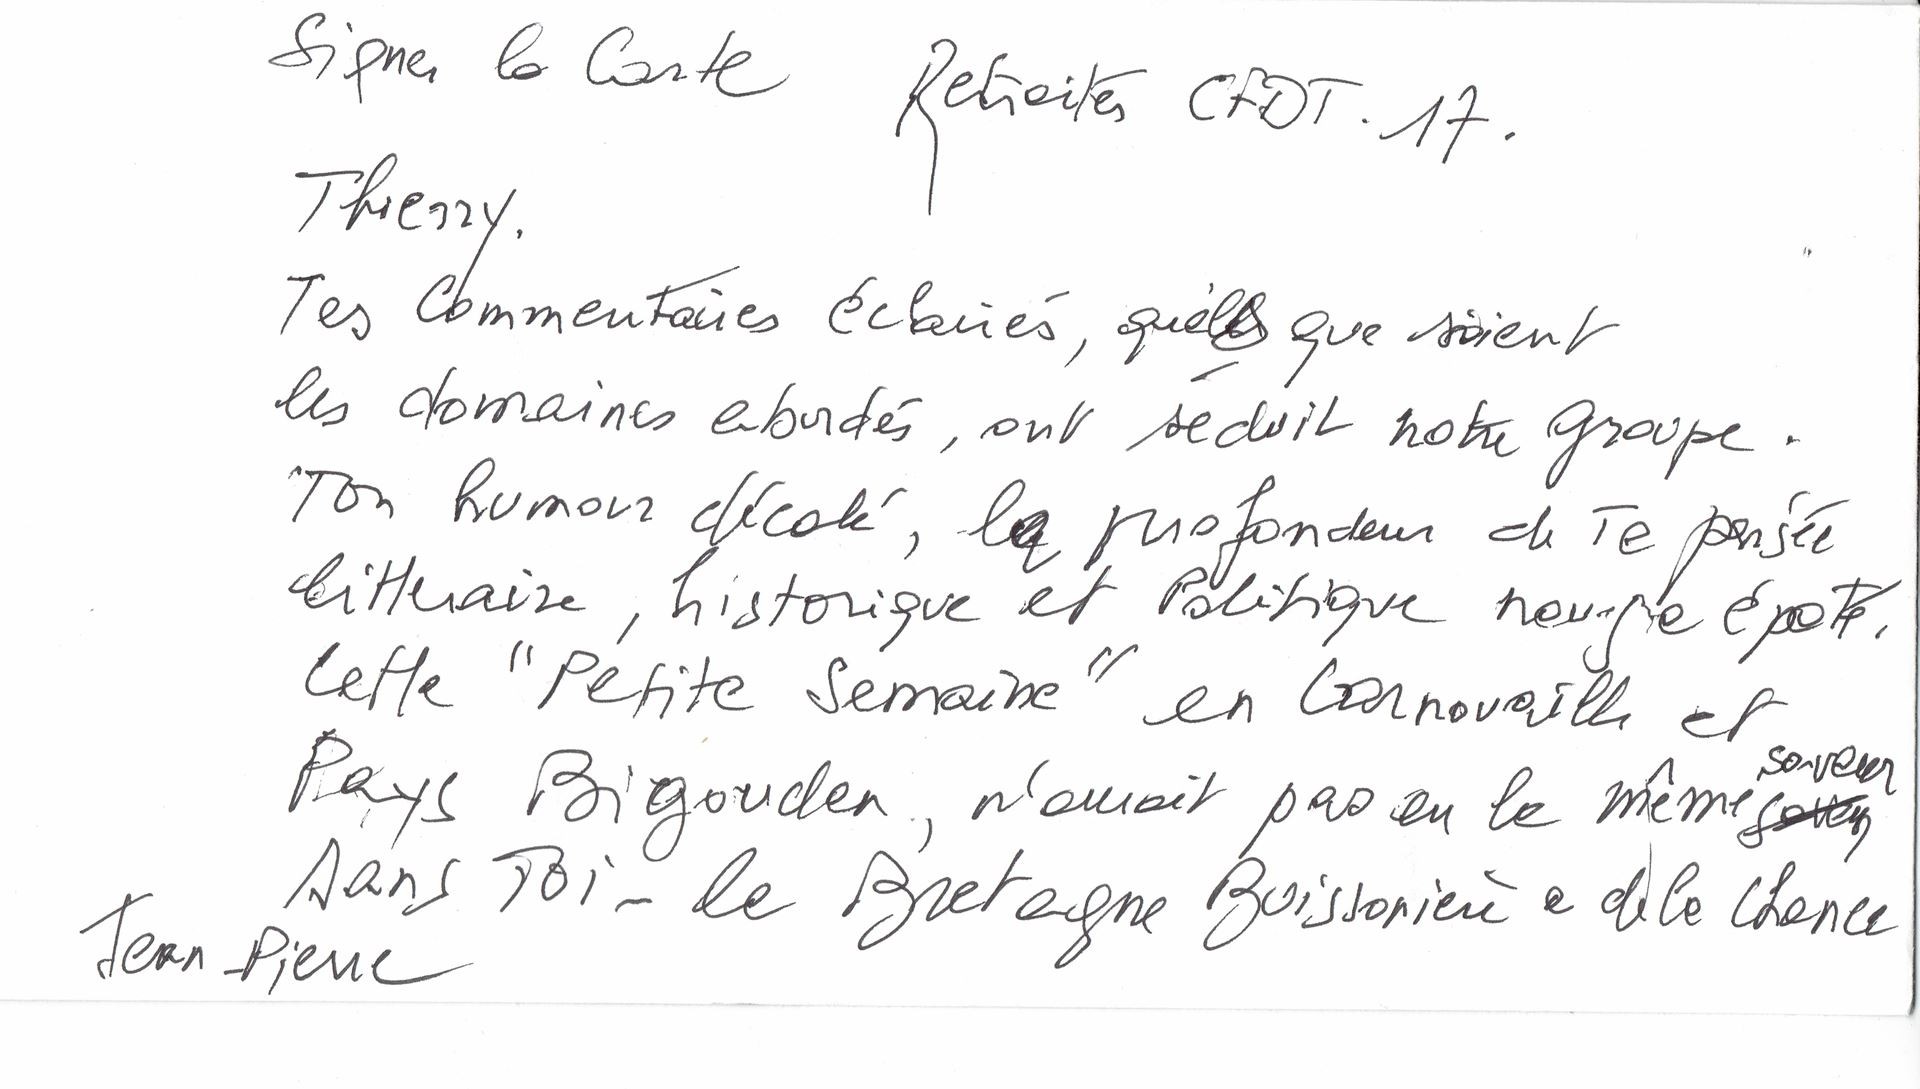 Signer la Carte Retraités CFDT. 17.
Thierry.
Tes Commentaires éclairés, quels que soient
les domaines abordés, ont séduit notre groupe.
Ton humour décalé, la profondeur de Ta pensée
littéraire, historique et Politique nous a épaté.
Cette "Petite Semaine" en Cornouaille et
Pays Bigouden, n'aurait pas eu la même saveur
sans Toi - la Bretagne Buissonière a de la Chance
Jean-Pierre